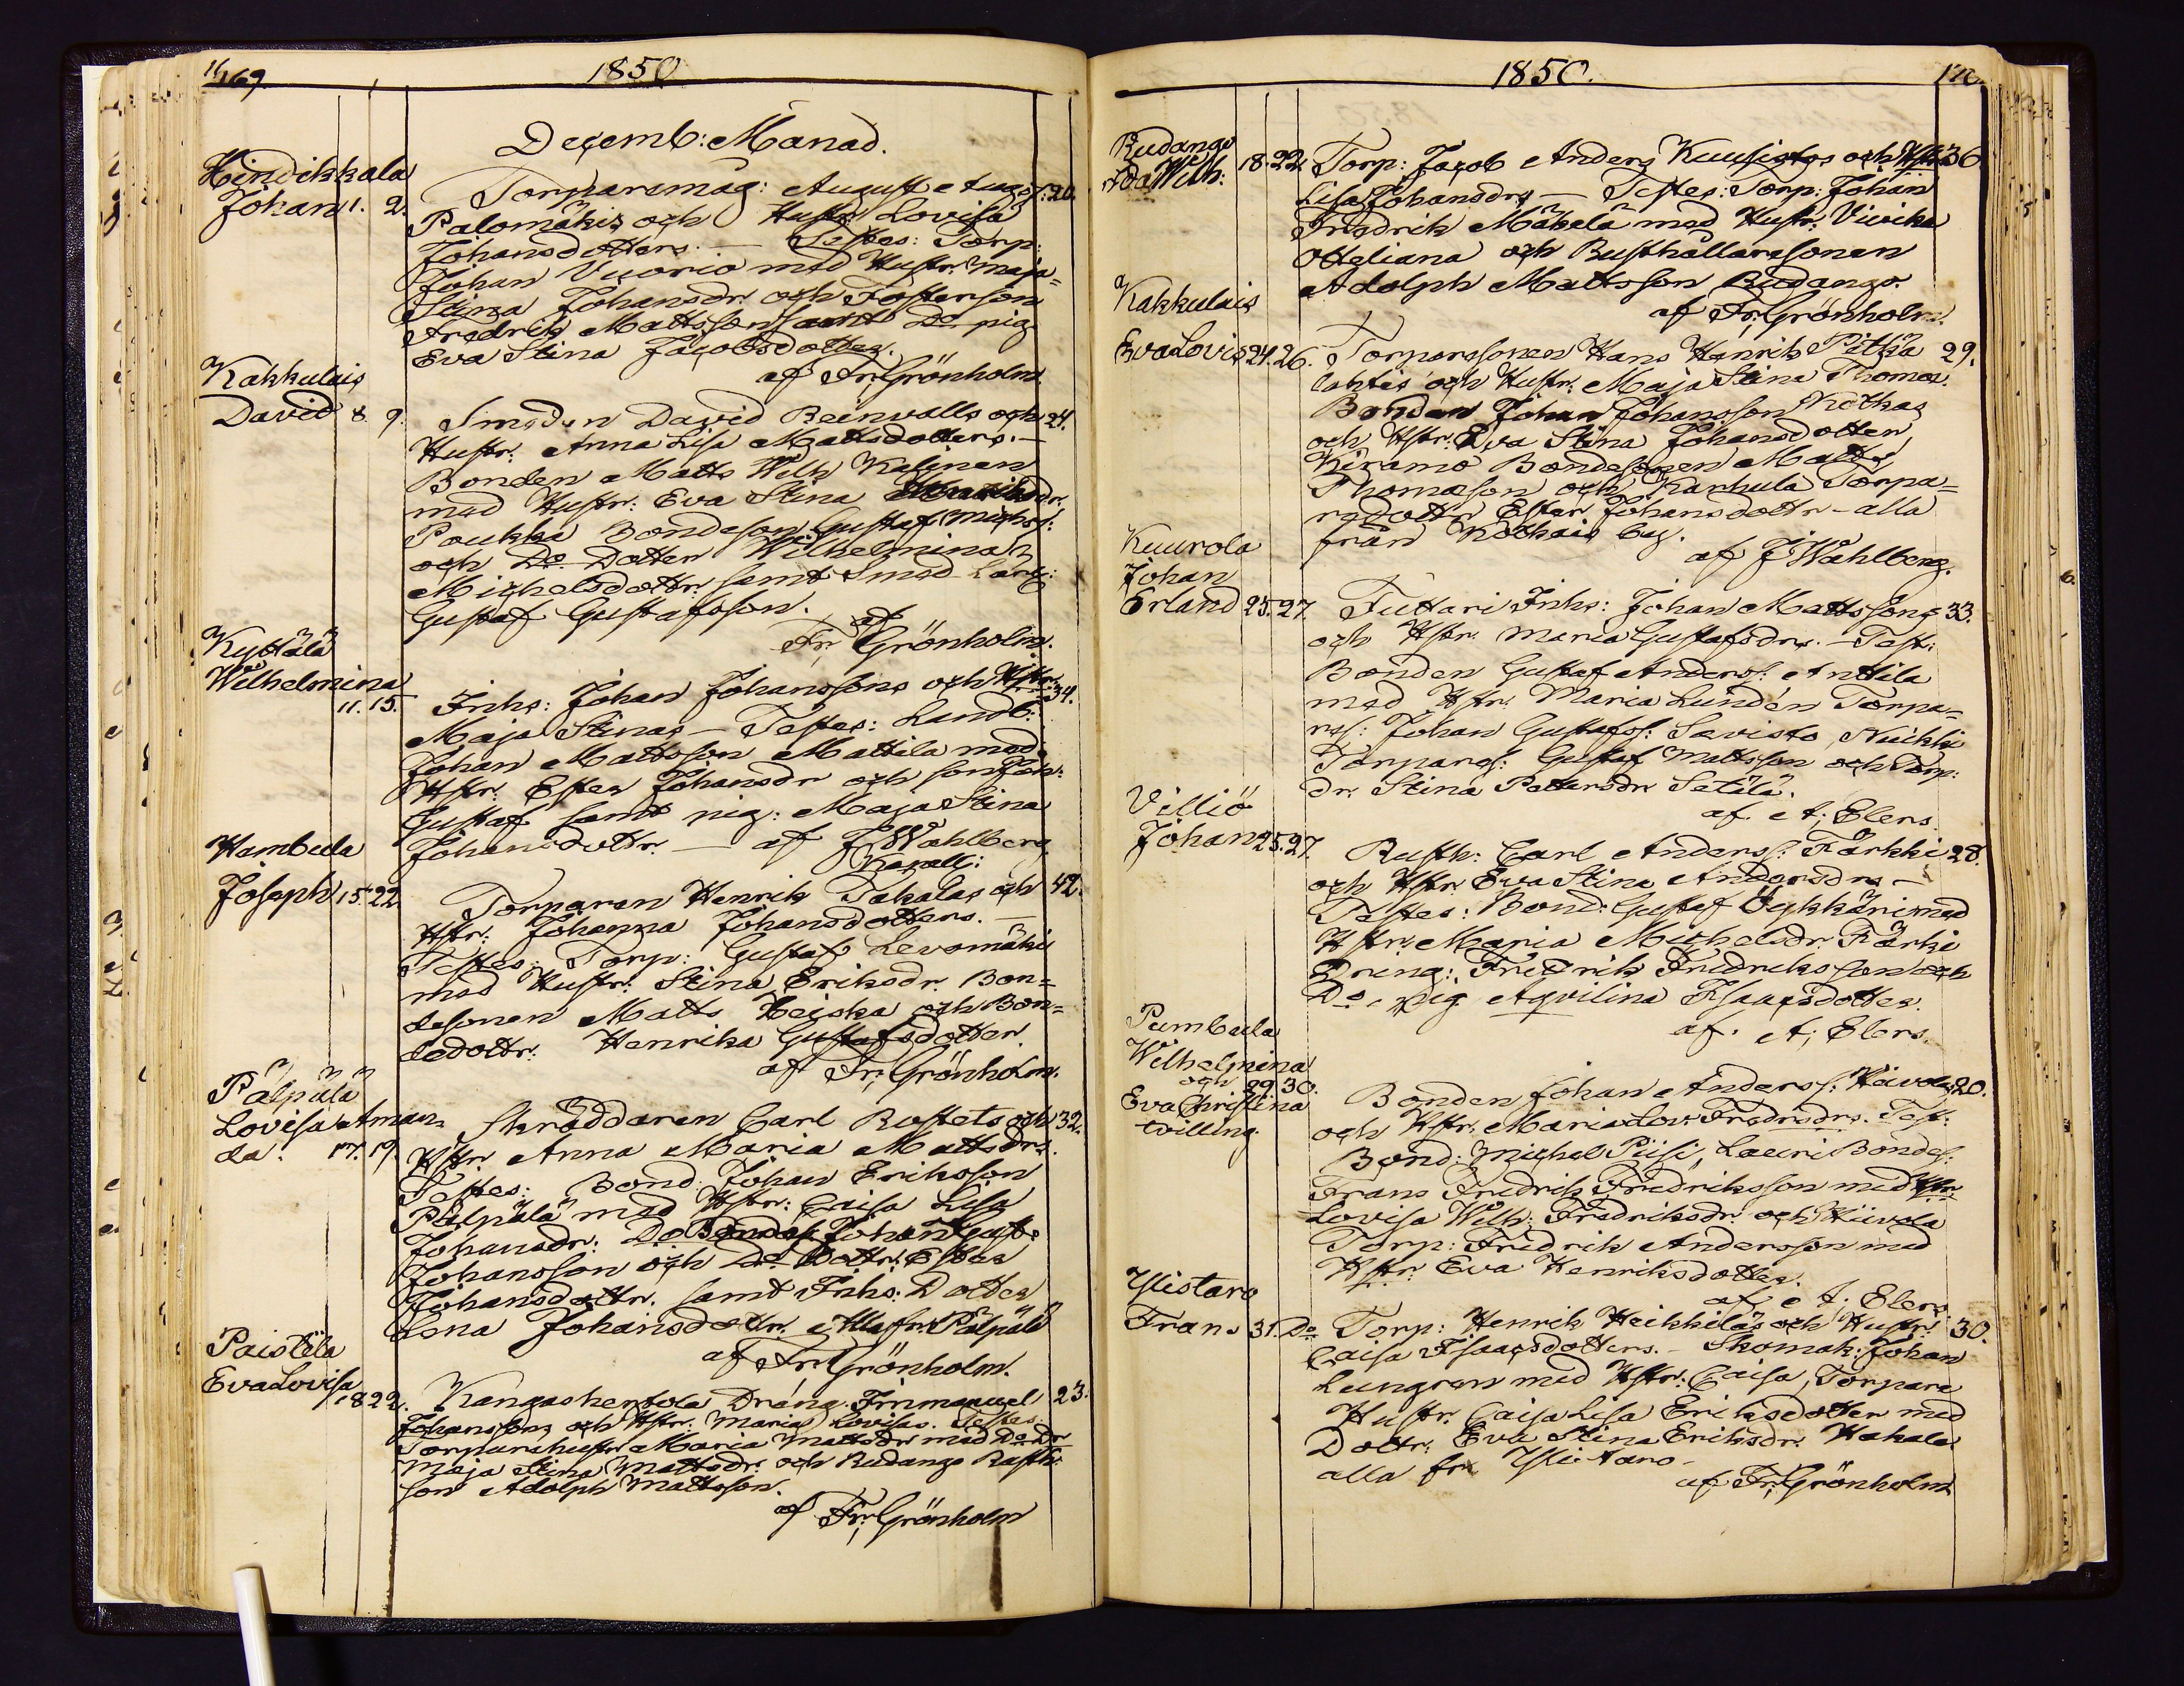 169.
1850
Decemb: Månad.
Hindikkala
Johan 1. 2.
Torparemåg: August Augs s: 20.
Palomäkis och Hustr Lovisa
Johansdotters. — Testes: Torp:
Johan Vuorio med Hustr. Maja
Stina Johansdr. och Fosterson
Fredrik Mattsson samt Do pig
Eva Stina Jacobsdotter.
af Fr. Grönholm.
Kakkulais
David 8. 9.
Smeden David Reinvalls och 24.
Hustr. Anna Lisa Mattsdotters. —
Bonden Matts Wilh Kalinen
med Hustr. Eva Stina
Poukka Bondeson Gustaf Michels:
och Do Dotter Wilhelmina
Michelsdottr. samt Smed Lärg:
Gustaf Gustafsson.
af
Fr. Grönholm.
Kyttälä
Wilhelmina
11. 15.
Inhs: Johan Johanssons och Hstr. 34.
Maja Stinas — Testes: Landb:
Johan Mattsson Mattila med
Hstr. Ester Johansdr och son Joh:
Gustaf samt pig: Maja Stina
Johansdottr. — af J Wahlberg
Kapall:
Hambula
Joseph 15. 22.
Torparen Henrik Takalas och 42.
Hstr. Johanna Johansdotters. —
Testes: Torp: Gustaf Levomäki
med Hustr: Stina Eriksdr. Bon=
desonen Matts Heiska och Bon=
dedottr. Henrika Gustafsdotter.
af Fr. Grönholm.
Pälpälä
Lovisa Aman=
da. 17. 19.
Skräddaren Carl Rostets och 32.
Hstr. Anna Maria Mattsdrs.
Testes: Bond: Johan Eriksson
Pälpälä med Hstr: Caisa Lisa
Johansdr. Do Bondes: Johan Gust:
Johansson och Do Dottr. Ester
Johansdottr. samt Inhs. Dotter
Lena Johansdottr. Alla fr. Pälpälä
af Fr. Grönholm.
Paistila
Eva Lovisa
18. 22.
Kangashentola Dräng. Immanuel 23.
Johanssons och Hstr. Maria Lovisas. Testes
Torparehustr Maria Mattsdr med Do Dr
Maja Stina Mattsdr. och Rudango Rusth:
son Adolph Mattsson.
af Fr. Grönholm
1850.
170.
Rudango
Ada Wilh: 18. 22.
Torp: Jacob Anders Kuusistos och Hstr 36.
Lisa Johansdrs — Testes: Torp: Johan
Fredrik Mäkelä med Hustr: Vivika
Otteliana och Rusthållaresonen
Adolph Mattsson Rudango.
af Fr. Grönholm.
Kakkulais
Eva Lovis 24. 26.
Torparesonen Hans Henrik Pitkä 29.
lahtis och Hustr: Maja Stina Thomas.
Bonden Johan Johansson Kothas
och Hstr. Eva Stina Johansdotter,
Kiramo Bondesonen Matts
Thomasson och Karhula Torpa=
redottr Ester Johansdottr – alla
från Kothais by.
af J Wahlberg.
Kuurola
Johan
Erland 25. 27.
Tuttari Inhs: Johan Mattssons 33.
och Hstr. Maria Gustafsdrs. — Test:
Bonden Gustaf Anders: Anttila
med Hstr. Maria Lundén Torpa=
res: Johan Gustafs: Savisto, Nuikki
Torpares: Gustaf Mattsson och Torp:
dr Stina Pettersdr Setälä.
af. A; Elers.
Villiö
Johan 25. 27.
Rusth: Carl Anderss: Färkki 28.
och Hstr Eva Stina Andersdrs —
Testes: Bond: Gustaf Öykkäri med
Hstr. Maria Michelsdr. Färki
Dräng: Fredrik Fredriksson och
Do, pig Aqvilina Isaacsdotter.
af. A; Elers.
Pumbula
Wilhelmina
och 29. 30.
Eva Christina
tvilling.
Bonden Johan Anderss: Hiivolas 20.
och Hstr. Maria Lov: Fredrsdrs. Test:
Bond: Michel Piisi, Lauri Bondes:
Frans Fredrik Fredriksson med Hstr.
Lovisa Wilh: Fredriksdr. och Hiivola
Torp: Fredrik Andersson med
Hstr. Eva Henriksdotter.
af A; Elers
Ylistaro
Frans 31. Do
Torp: Henrik Heikkiläs och Hustr. 30.
Caisa Isaacsdotters. – Skomak: Johan
Lungren med Hstr: Caisa, Torpare
Hustr. Caisa Lisa Eriksdotter med
Dottr. Eva Stina Eriksdr. Hakala
alla fr. Ylistaro –
af Fr. Grönholm